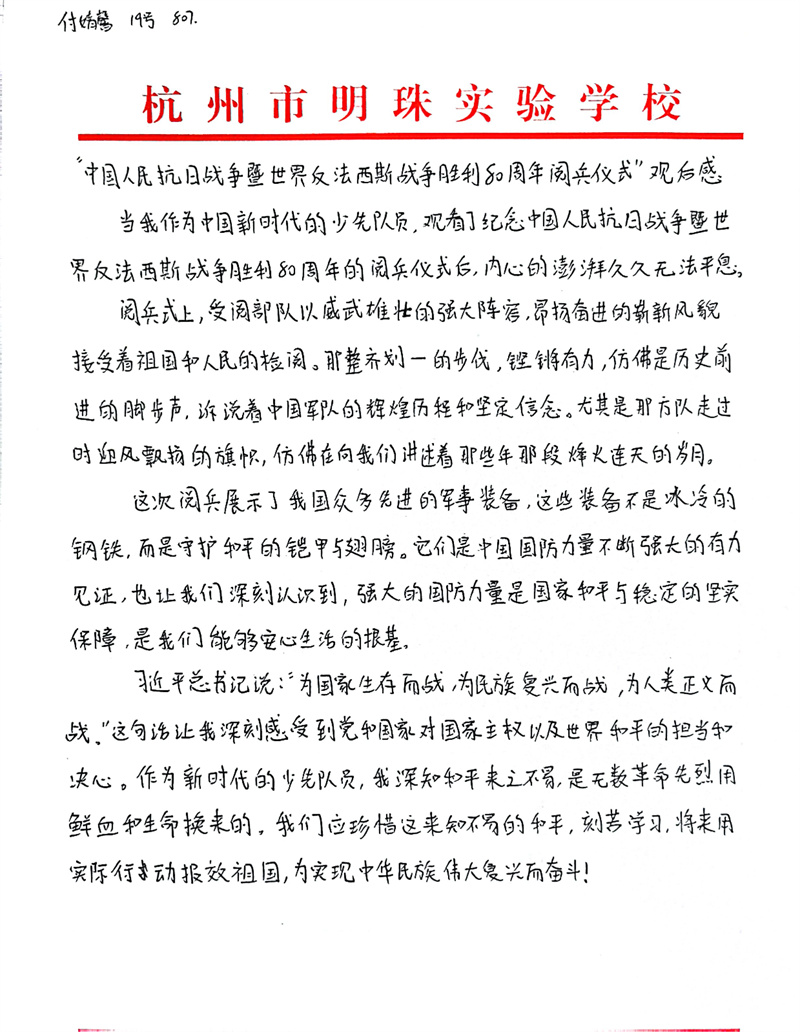 付婧鸶 19号 807.
杭州市明珠实验学校
“中国人民抗日战争暨世界反法西斯战争胜利80周年阅兵仪式”观后感
当我作为中国新时代的少先队员，观看了纪念中国人民抗日战争暨世
界反法西斯战争胜利80周年的阅兵仪式后，内心的澎湃久久无法平息。
阅兵式上，受阅部队以威武雄壮的强大阵容，昂扬奋进的崭新风貌
接受着祖国和人民的检阅。那整齐划一的步伐，铿锵有力，仿佛是历史前
进的脚步声，诉说着中国军队的辉煌历程和坚定信念。尤其是那方队走过
时迎风飘扬的旗帜，仿佛在向我们讲述着那些年那段烽火连天的岁月。
这次阅兵展示了我国众多先进的军事装备，这些装备不是冰冷的
钢铁，而是守护和平的铠甲与翅膀。它们是中国国防力量不断强大的有力
见证，也让我们深刻认识到，强大的国防力量是国家和平与稳定的坚实
保障，是我们能够安心生活的根基。
习近平总书记说：“为国家生存而战，为民族复兴而战，为人类正义而
战。”这句话让我深刻感受到党和国家对国家主权以及世界和平的担当和
决心。作为新时代的少先队员，我深知和平来之不易，是无数革命先烈用
鲜血和生命换来的。我们应珍惜这来知不易的和平，刻苦学习，将来用
实际行动报效祖国，为实现中华民族伟大复兴而奋斗！